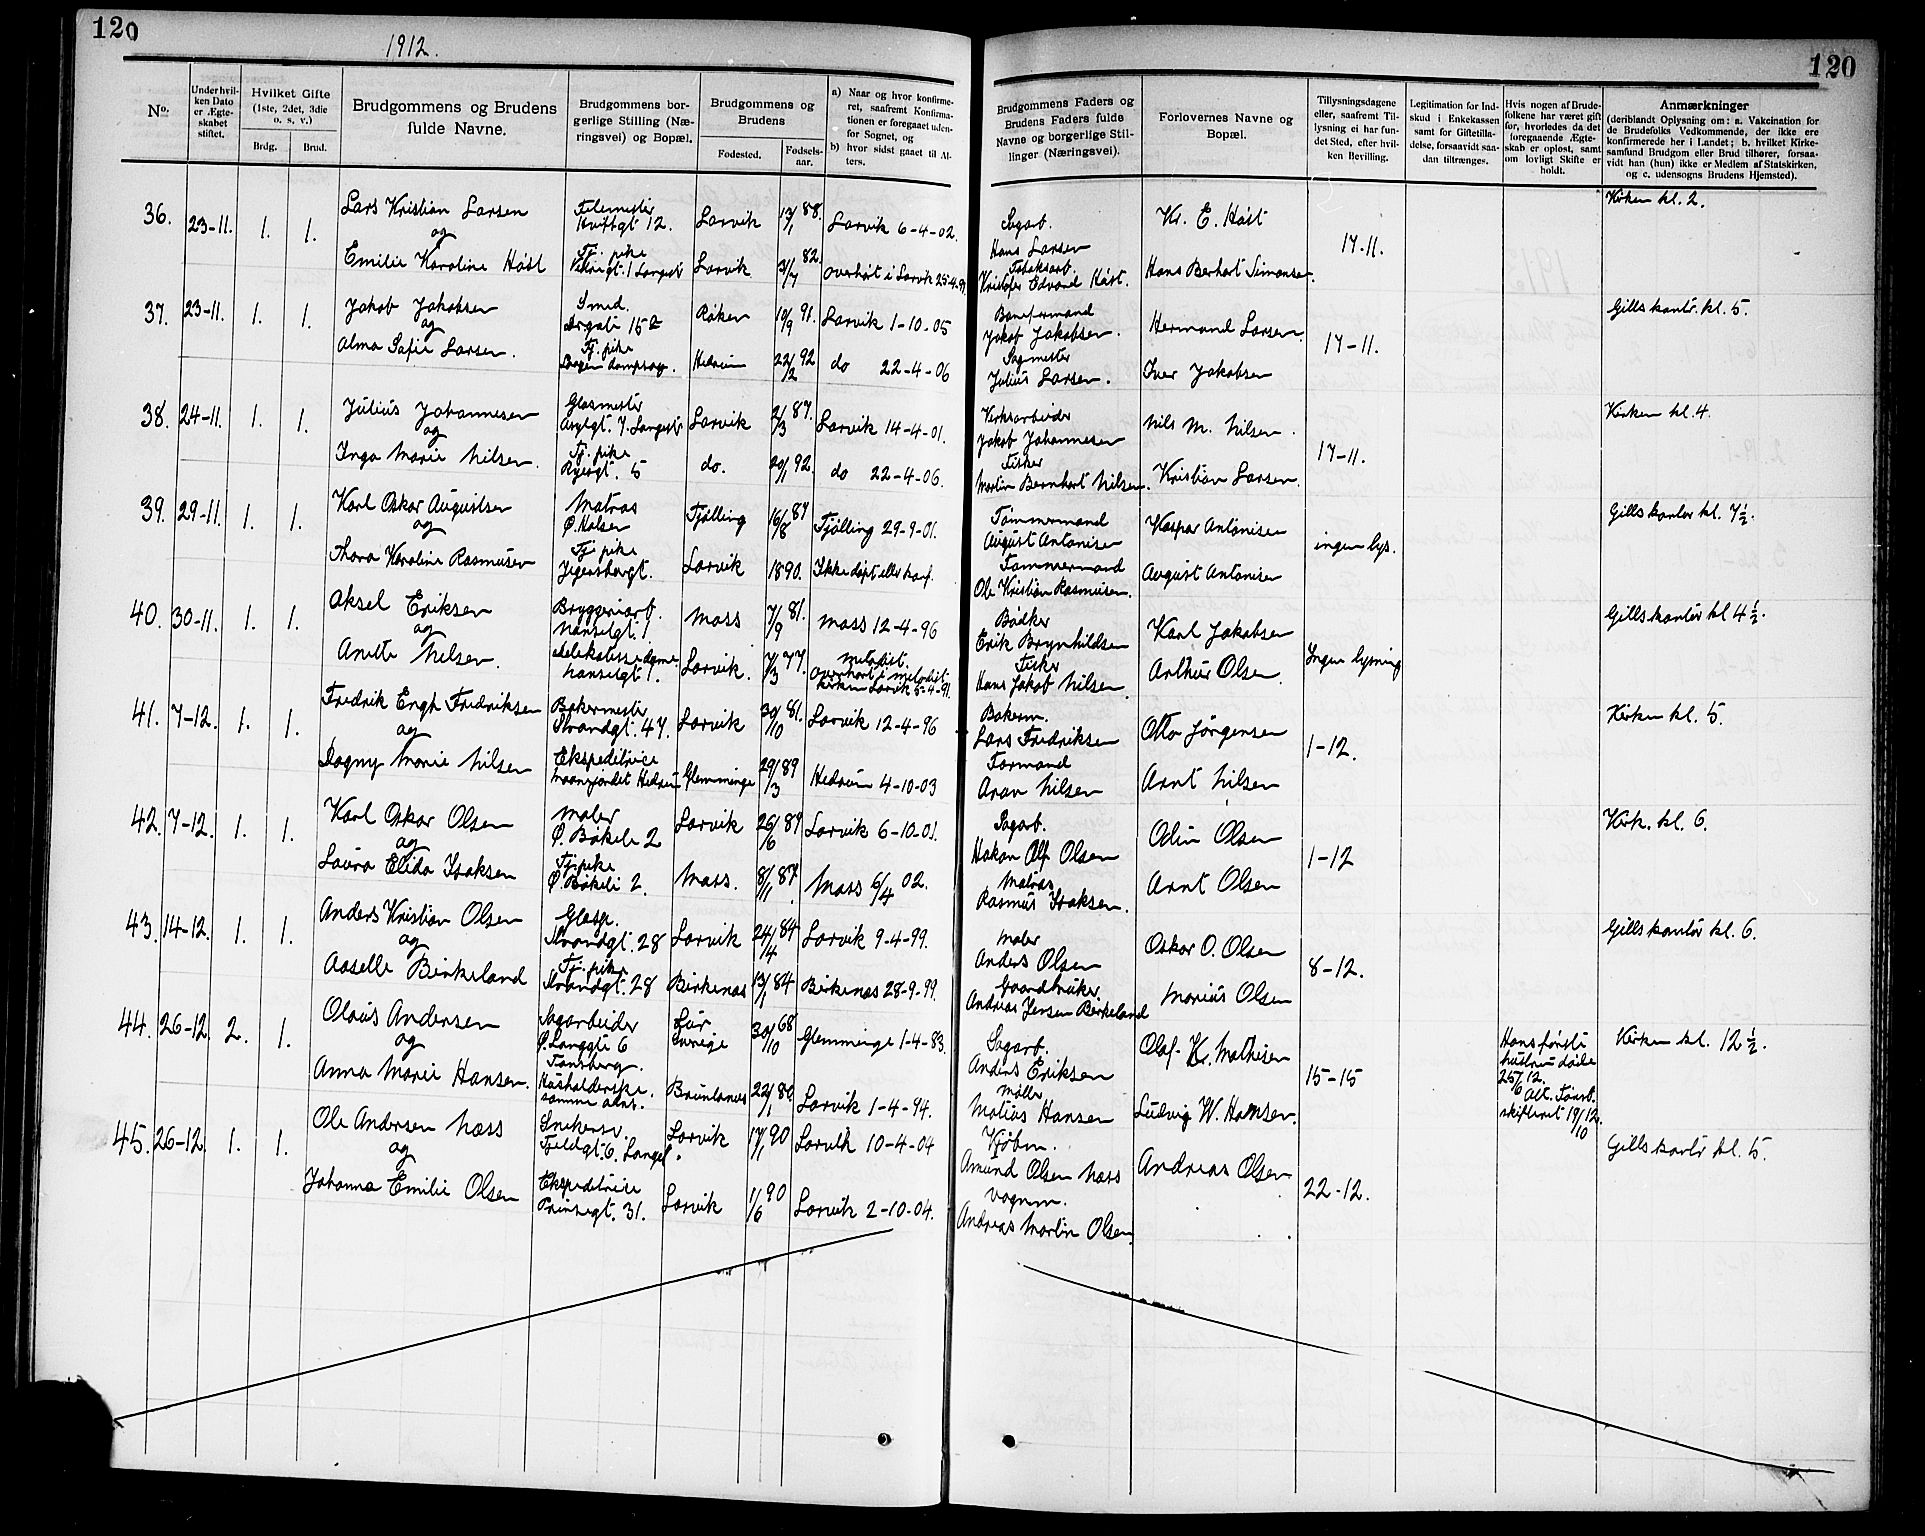 120
1912.
120
No.
Under hvilken Dato er Ægteskabet stiftet.
Hvilket Gifte (1ste, 2det, 3die o. s. v.)
Brdg.
Brud.
Brudgommens og Brudens fulde Navne.
Brudgommens borgerlige Stilling (Næringsvei) og Bopæl.
Brudgommens og Brudens
Fødested.
Fødselsaar.
a) Naar og hvor konfirmeret, saafremt Konfirmationen er foregaaet udenfor Sognet, og
b) hvor sidst gaaet til Alters.
Brudgommens Faders og Brudens Faders fulde Navne og borgerlige Stillinger (Næringsvei).
Forlovernes Navne og Bopæl.
Tillysningsdagene eller, saafremt Tillysning ei har fundet Sted, efter hvilken Bevilling.
Legitimation for Indskud i Enkekassen samt for Giftetilladelse, forsaavidt saadan tiltrænges.
Hvis nogen af Brudefolkene har været gift før, hvorledes da det foregaaende Ægteskab er opløst, samt om lovligt Skifte er holdt.
Anmærkninger
(deriblandt Oplysning om: a. Vakcination for de Brudefolks Vedkommende, der ikke ere konfirmerede her i Landet; b. hvilket Kirkesamfund Brudgom eller Brud tilhører, forsaavidt han (hun) ikke er Medlem af Statskirken, og c. udensogns Brudens Hjemsted).
36. 23-11. 1. 1. Lars Kristian Larsen Filemester Larvik 13/1 88. Larvik 6-4-02. Sagarb. Kr. E. Høst 17-11. Kirken kl. 2.
og Kvittgt 12. Hans Larsen
Emilie Karoline Høst Tj. pike Larvik 3/7 82. overhørt i Larvik 25-4-97 Fabriksarb. Hans Berhart Simonsen.
Kristofer Edvard Høst.
37. 23-11. 1. 1. Jakob Jakobsen Smed. Røken 10/9 91. Larvik 1-10-05 Baneformand Hermand Larsen. 17-11. Gillskontr. kl. 5.
og Drgati 15 Jakob Jakobsen.
Alma Sofie Larsen. Tj. pike Hedrum 22/2 92 do 22-4-06 Sagmester Iver Jakobsen
Julius Larsen.
38. 24-11. 1. 1. Julius Johannesen Glasmester Larvik 2/3 87. Larvik 14-4-01. Verksarbeider Nils M. Nilsen. 17-11. Kirken kl. 4.
og 7. Langestr Jakob Johannesen
Inga Marie Nilsen. Tj. pike do. 20/1 92. do 22-4-06. Fisker Kristian Larsen.
5 Martin Bernhart Nilsen.
39. 29-11. 1. 1. Karl Oskar Augustsen Matros Tjølling 16/8 87 Tjølling 29-9-01. Tømmermand Kaspar Antonisen ingen lys. Gillskontor kl. 7½.
og Ø. Halsen August Antonisen
Thora Karoline Rasmusen Tj. pike Larvik 1890. Ikke døpt eller konf. Tømmermand August Antonisen
Jegersborgt. Ole Kristian Rasmusen.
40. 30-11. 1. 1. Aksel Eriksen Bryggeriarb. Moss 7/9 81. Moss 12-4-96 Bødker Karl Jakobsen Ingen lysning Gillskontor kl 4½.
og Nanselgt 1 Erik Brynhildsen
Anette Nilsen. Delikatessedame Larvik. 7/3 77. metodist. Fisker Arthur Olsen.
Nanselgt 1. overhørt i metodistkirken Larvik 5-4-91. Hans Jakob Nilsen.
41. 7-12. 1. 1. Fredrik Engh Fredriksen Bakermester Larvik 30/10 81. Larvik 12-4-96 Bakerm. Otto Jørgensen 1-12. Kirken kl. 5.
og Strandgt. 47. Lars Fredriksen
Dagny Marie Nilsen Ekspeditrice Glemminge 29/3 89 Hedrum 4-10-03 Formand Arnt Nilsen
Hedrum Aron Nilsen
42. 7-12. 1. 1. Karl Oskar Olsen Maler Larvik 26/6 87 Larvik 6-10-01. Sagarb. Odin Olsen 1-12 Kirk. kl. 6.
og Ø. Bøkeli 2 Hakon Olf Olsen
Laura Elida Isaksen Tj. pike Moss. 8/11 87. Moss 6/4 02. Matros Arnt Olsen
Ø. Bøkeli 2. Rasmus Isaksen.
43. 14-12. 1. 1. Anders Kristian Olsen Glasp. Larvik 24/4 84 Larvik 9-4-99. Maler Oskar O. Olsen 8-12. Gillskontor kl. 6.
og Strandgt. 28 Anders Olsen
Aaselle Birkeland Tj. pike Birkenes 13/1 84 Birkenes 28-9-99. Gaardbruker. Marius Olsen
Strandgt. 28 Andreas Jensen Berkeland
44. 26-12. 2. 1. Olaus Andersen Sagarbeider Lur 30/10 68 Glemminge 1-4-83. Sagarb. Olaf Kr. Mathisen 15-15 Hans første hustru døde 25/6 12. Att. Tønsb. skifteret 19/10 12. Kirken kl. 12½.
og Ø. Langgt. 6 Sverige Anders Eriksen
Tønsberg.
Anna Marie Hansen. Husholderske. Brunlanes 22/1 80. Larvik 1-4-94. Møller Ludvig W. Hansen.
samme adr. Matias Hansen
45. 26-12. 1. 1. Ole Andersen Næss Snikersv. Larvik 17/1 90 Larvik 10-4-04 Kjøbm. Andreas Olsen 22-12. Gillskontor kl. 5.
og Fjeldgt. 6. Langest. Amund Olsen Næss
Johanna Emilie Olsen Ekspeditrice Larvik 1/6 90 Larvik 2-10-04. Vognm.
Prinsegt. 31. Andreas Martin Olsen.